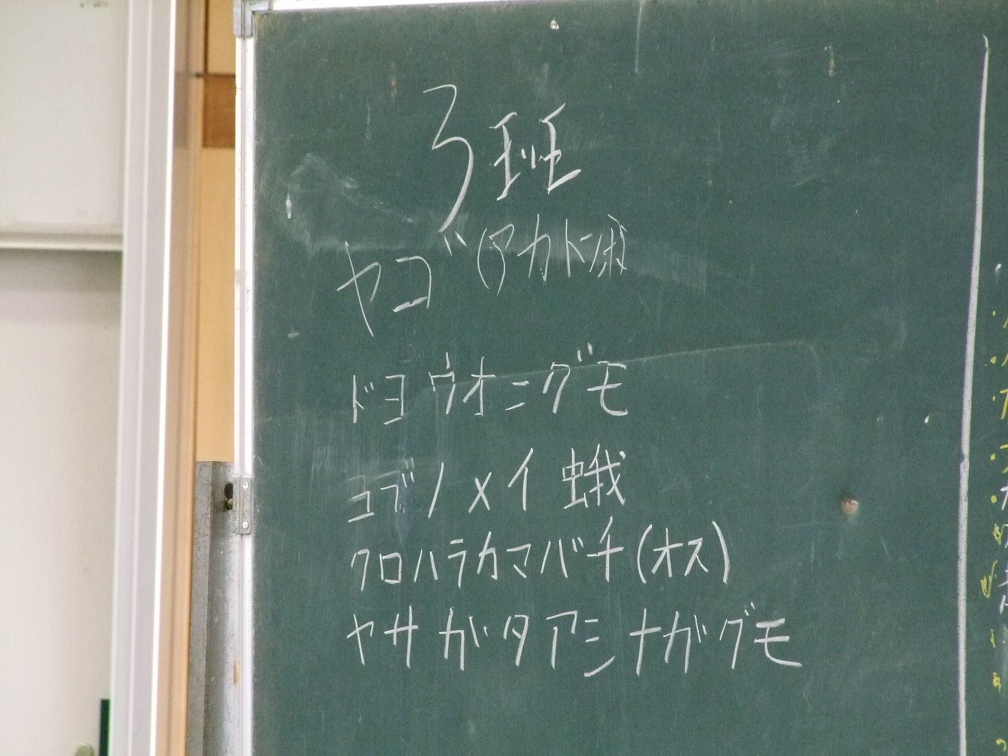 3班
ヤゴ(アカトンボ)
ドヨウオニグモ
コブノメイ蛾
クロハラカマバチ(オス)
ヤサガタアシナガグモ